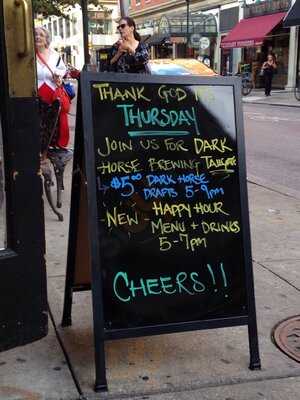 THANK GOD ITS
THURSDAY
JOIN US FOR DARK
HORSE BREWING
$5 DARK HORSE
DRAFTS 5-9PM
-NEW HAPPY HOUR
MENU + DRINKS
5-7PM
CHEERS!!